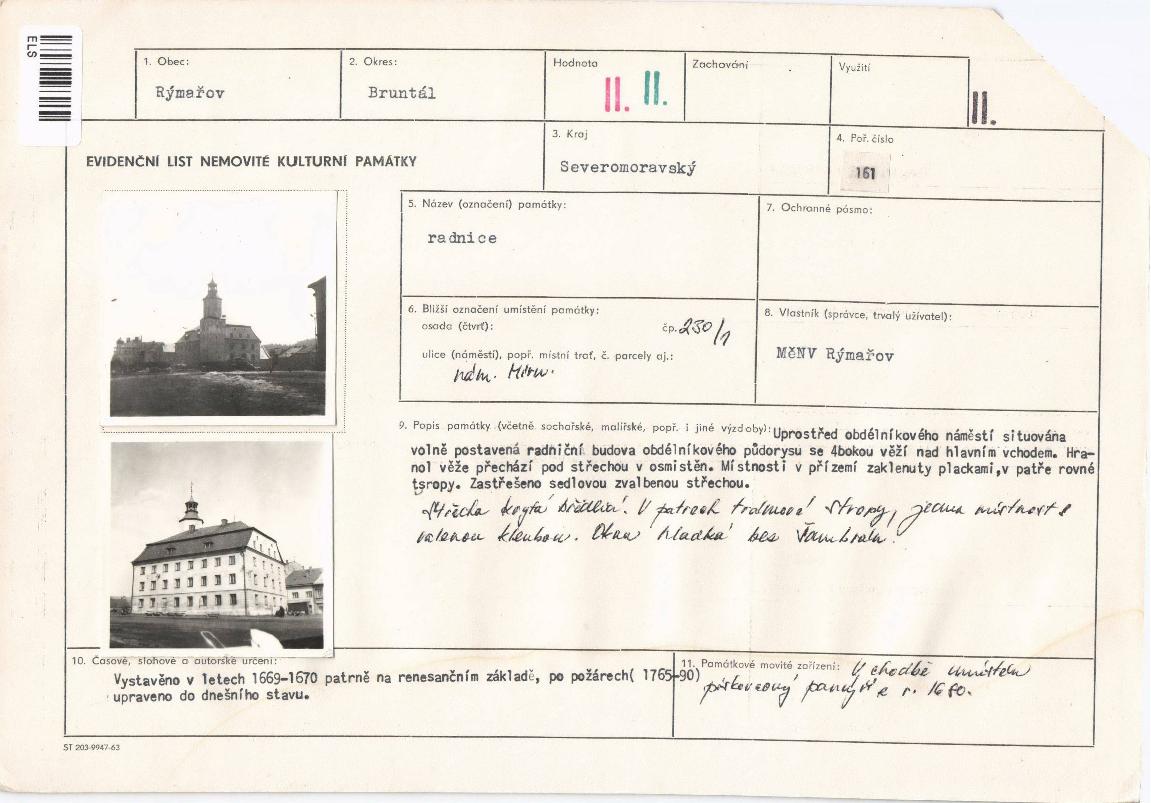 ELS
1. Obec:
Rýmařov
2. Okres:
Bruntál
Hodnota
II. II.
Zachování
Využití
II.
EVIDENČNÍ LIST NEMOVITÉ KULTURNÍ PAMÁTKY
3. Kraj
Severomoravský
4. Poř. číslo
161
5. Název (označení) památky:
radnice
7. Ochranné pásmo:
6. Bližší označení umístění památky:
osada (čtvrť):
čp. 230/1
ulice (náměstí), popř. místní trať, č. parcely aj.:
nám. Míru.
8. Vlastník (správce, trvalý uživatel):
MěNV Rýmařov
9. Popis památky (včetně sochařské, malířské, popř. i jiné výzdoby): Uprostřed obdélníkového náměstí situována
volně postavená radniční budova obdélníkového půdorysu se 4bokou věží nad hlavním vchodem. Hra-
nol věže přechází pod střechou v osmistěn. Místnosti v přízemí zaklenuty plackami,v patře rovné
tsropy. Zastřešeno sedlovou zvalbenou střechou.
Střecha krytá břidlicí. V patrech trámové stropy, jedna místnost s
valenou klenbou. Okna hladká bez šambrán.
10. Časové, slohové a autorské určení:
Vystavěno v letech 1669-1670 patrně na renesančním základě, po požárech( 1765-90)
upraveno do dnešního stavu.
11. Památkové movité zařízení: V chodbě umístěn
pískovcový pranýř z r. 1680.
ST 203-9947-63